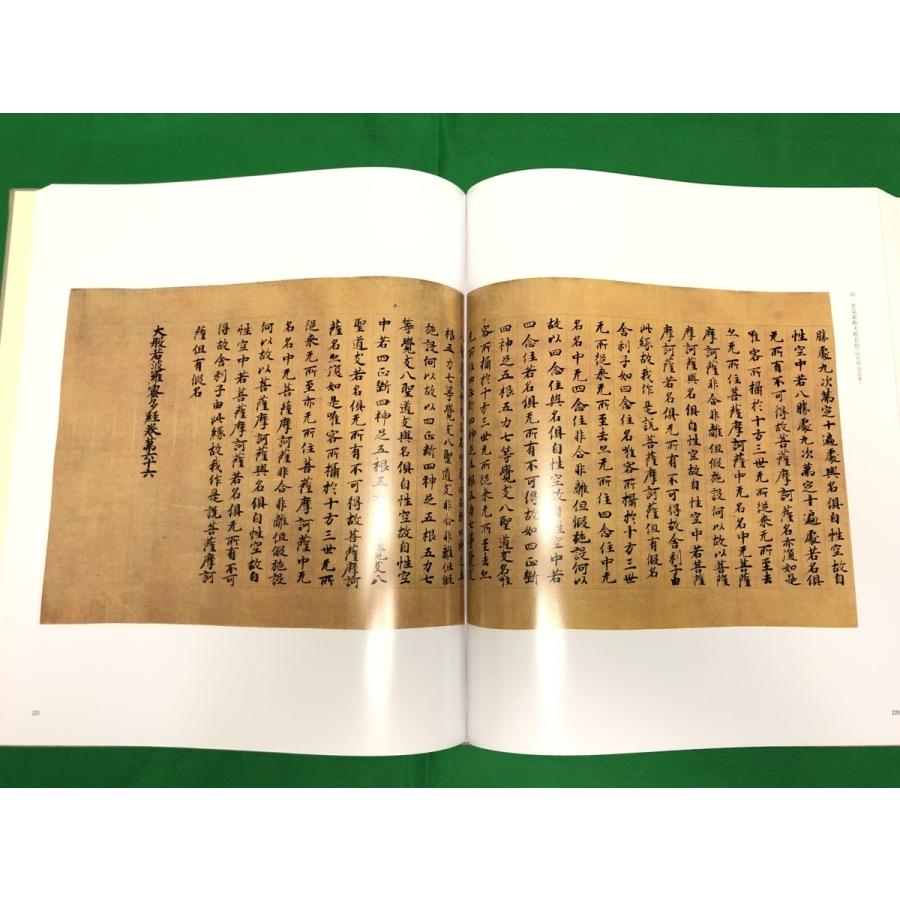 勝處九次第定十遍處與名俱自性空故自
性空中若八勝處九次第定十遍處若名俱
无所有不可得故菩薩摩訶薩名亦復如是
唯客所攝於十方三世无所從來无所至去
亦无所住菩薩摩訶薩中无名名中无菩薩
摩訶薩非合非離但假施設何以故以菩薩
摩訶薩與名俱自性空故自性空中若菩薩
摩訶薩若名俱无所有不可得故舍利子由
此緣故我作是說菩薩摩訶薩但有假名
舍利子如四念住名唯客所攝於十方三世
无所從來无所至去亦无所住四念住中无
名名中无四念住非合非離但假施設何以
故以四念住與名俱自性空故自性空中若
四念住若名俱无所有不可得故如四正斷
四神足五根五力七等覺支八聖道支名唯
客所攝於十方三世无所從來无所至去亦
根五力七等覺支八聖道支非合非離但假
施設何以故以四正斷四神足五根五力七
等覺支八聖道支與名俱自性空故自性空
中若四正斷四神足五根五力等覺支八
聖道支若名俱无所有不可得故菩薩摩訶
薩名亦復如是唯客所攝於十方三世无所
從來无所至亦无所住菩薩摩訶薩中无
名名中无菩薩摩訶薩非合非離但假施設
何以故以菩薩摩訶薩與名俱自性空故自
性空中若菩薩摩訶薩若名俱无所有不可
得故舍利子由此緣故我作是說菩薩摩訶
薩但有假名
大般若波羅蜜多經卷第六十六
221
220